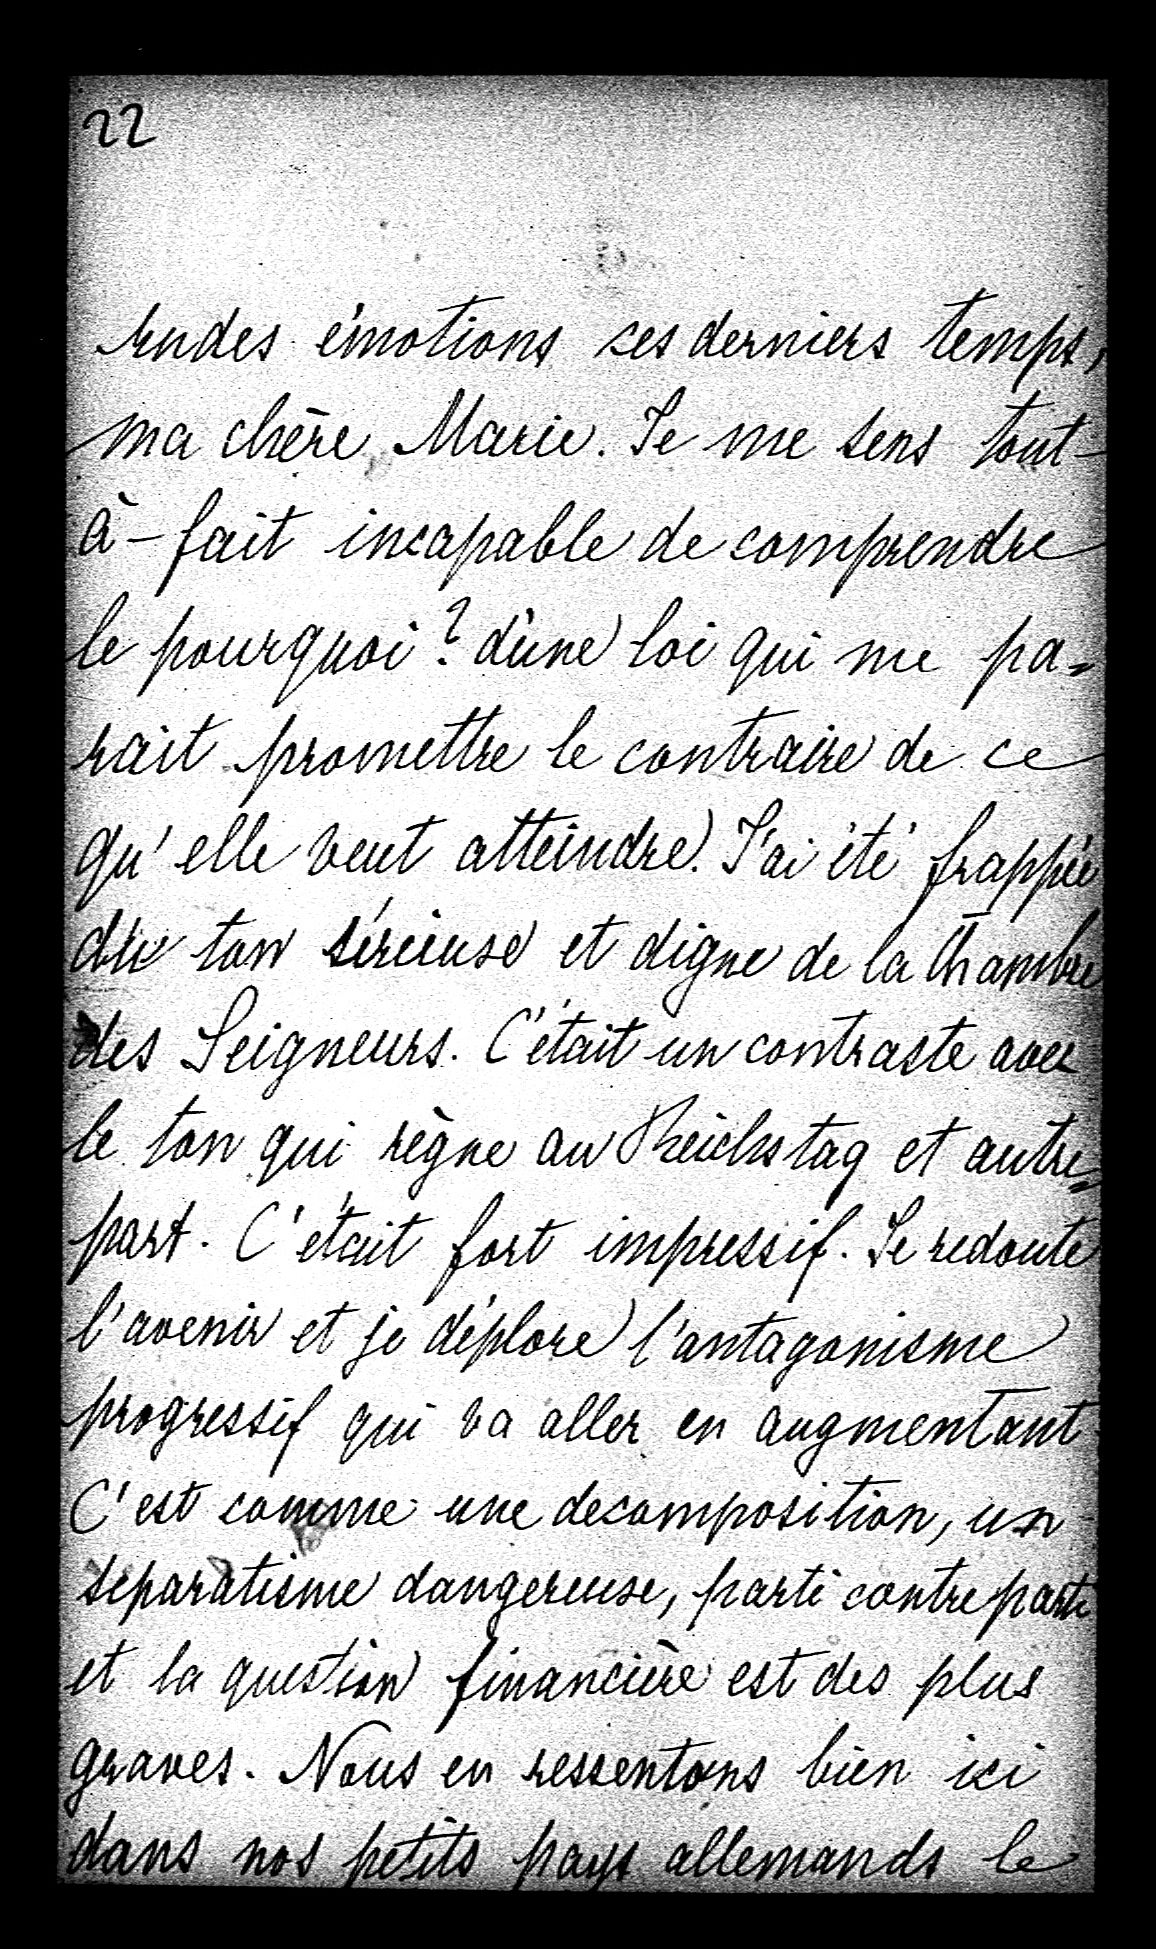 22
rudes émotions ces derniers temps,
ma chère Marie. Je me sens tout-
à-fait incapable de comprendre
le pourquoi? d'une loi qui me pa=
rait promettre le contraire de ce
qu'elle veut atteindre. J'ai été frappée
du ton sérieuse et digne de la Chambre
des Seigneurs. C'était un contraste avec
le ton qui règne au Reichstag et autre=
part. C'était fort impressif. Je redoute
l'avenir et je déplore l'antagonisme
progressif qui va aller en augmentant
C'est comme une decomposition, un
separatisme dangereuse, parti contre parti
et la question financière est des plus
graves. Nous en ressentons bien ici
dans nos petits pays allemands le